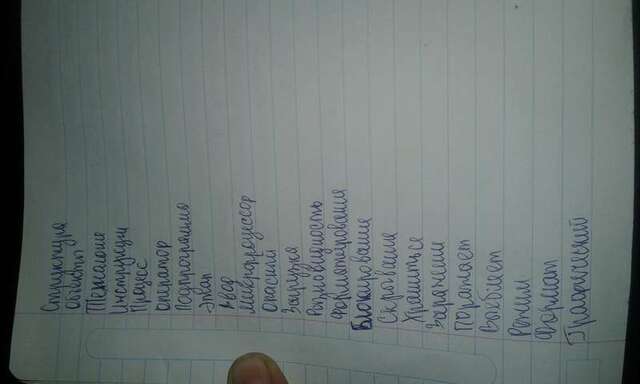 Структура
Объекты
Инструкции
Процесс
Оператор
Подпрограмма
Этап
Ввод
Микропроцессор
Опасный
Загрузка
Разновидность
Форматирование
Блокирование
Скрывание
Храниться
Заражение
Поражает
Режим
Формат
Графический